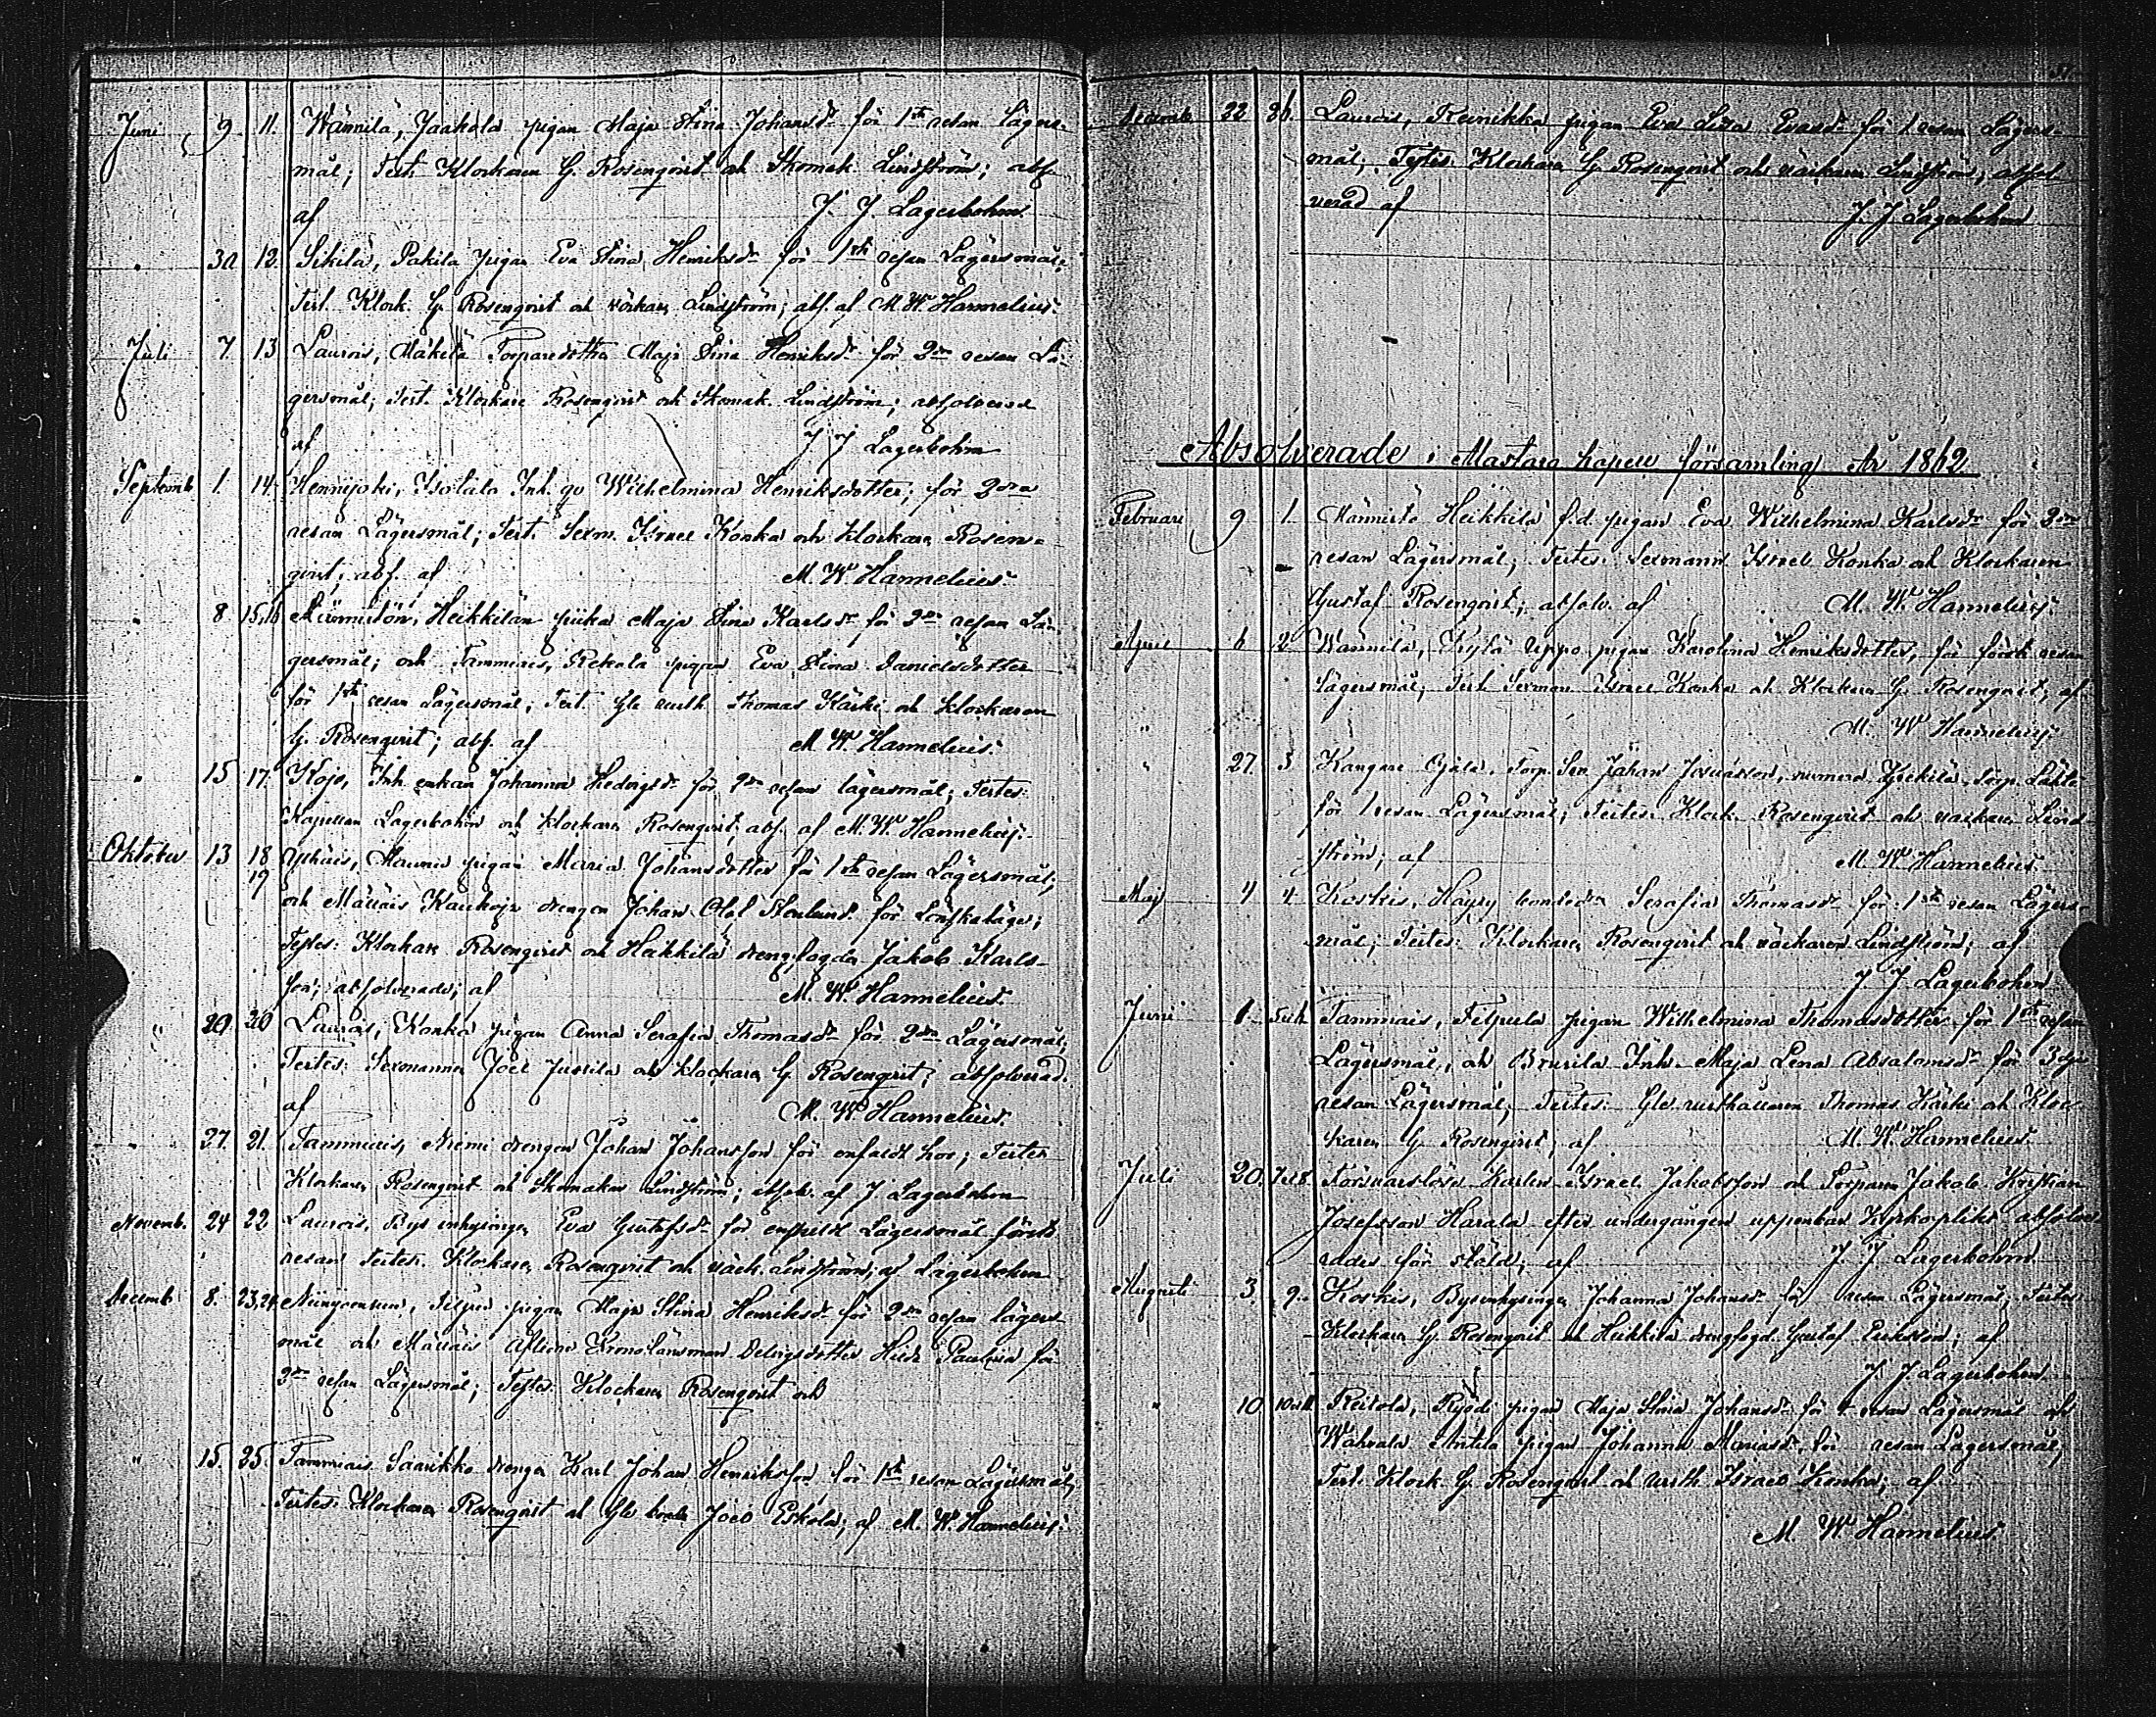 Juni 9 11. Wännilä, Jaakola pigan Maja Stina Johansdr för 1sta resan Lägers-
mål; Test. Klockaren G. Rosenqvist och Skomak. Lindström; abs.
af J. J. Lagerbohm
" 30 12. Sikilä, Pakila pigan Eva Stina Henriksdr för 1sta resan Lägersmål;
Test. Klock. G. Rosenqvist och Lindström; abs. af M. W. Hannelius.
Juli 7 13 Laurois, Mäkilä Torparedotter Maja Stina Henriksdr för 2dra resan Lä-
gersmål; Test. Klockare Rosenqvist och Skomak. Lindström; absolverad
af J J Lagerbohm
Septemb. 1. 14. Hennijoki, Isotalo Inh. qv Wilhelmina Henriksdotter; för 2dra
resan Lägersmål; Test. Sexm. Israel Konka och klockare Rosen-
qvist; abs. af M. W. Hannelius.
" 8. 15,16 Männistön, Heikkilän piika Maja Stina Karlsdr för 2dra resan Lä-
gersmål; och Tammiais, Rekola pigan Eva Stina Danielsdotter
för 1sta resan Lägersmål, Test. Gle Thomas Kärki och klockaren
G. Rosenqvist; abs. af M W. Hannelius.
" 15 17. Kojo, Inh. enkan Johanna Hedvigsdr för 2dra resan lägersmål; Testes:
Kapellan Lagerbohm och klockare Rosenqvist, abs. af M. W. Hannelius.
Oktober 13 18 Maunu pigan Maria Johansdotter för 1sta resan Lägersmål;
19 och Kaukoja drengen Johan Olof för Lönskaläger;
Testes: Klockare Rosenqvist och Heikkilä drengfogden Jakob Karls-
son; absolverade; af M. W. Hannelius.
" 20 20 Laurois, Konka pigan Anna Serafia Thomasdr för 2dra Lägersmål;
Testes: Sexmannen Joel Jussila och klockare G. Rosenqvist; absolverad
af M. W. Hannelius.
" 27. 21. Tammiais, Niemi drengen Johan Johansson för enfaldt hor; Testes
Klockare Rosenqvist och Skomakar Lindström; absolv. af J. Lagerbohm
Novemb. 24 22 Laurois, Bys inhysinge Eva Gustafsdr för enfaldt Lägersmål första
resan testes. Klockare Rosenqvist och Lindström; af Lagerbohm
Decemb. 8. 23,24 pigan Maja Stina Henriksdr för 2dra resan lägers-
mål och Aflidne Kronolänsman dotter Paulina för
2dra resan Lägersmål; Testes: Klockaren Rosenqvist och
" 15. 25. Tammiais Saarikko drengen Karl Johan Henriksson för 1sta resan Lägersmål;
Testes: Klockare Rosenqvist och Joel Eskola; af M. W. Hannelius.
Decemb 22 26. Laurois, Reinikka pigan Eva Lisa Evasdr för 1 resan Lägers-
mål; Testes Klockare G. Rosenqvist och väckaren Lindström, absol-
verad af J J Lagerbohm
Absolverade i Mastara kapell församling År 1862
Februari 9 1. Männistö Heikkilä f.d. pigan Eva Wilhelmina Karlsdr för 2dra
resan Lägersmål; Testes: Sexmann Israel Konka och Klockaren
Gustaf Rosenqvist; absolv. af M. W. Hannelius.
April 6 2 Wännilä, Kylä Uppo pigan Karolina Henriksdotter, för första resan
Lägersmål; Test Sexman Israel Konka och Klockare G. Rosenqvist; af
M. W Hannelius
" 27. 3 Kangare Ojala, Torp. Son Johan numera
för 1 resan Lägersmål; Testes: Klock. Rosenqvist och väckare Lind-
ström; af M. W Hannelius
Maj 4 4 Koskis, Häyry bondedr Serafia Thomasdr för 1sta resan Lägers-
mål; Testes: Klockare Rosenqvist och väckaren Lindström; af
J. J Lagerbohm
Juni 1. 5 o 6. Tammiais, Tilpula pigan Wilhelmina Thomasdotter för 1sta resan
Lägersmål, och Inh. Maja Lena Absalomsdr för 3dje
resan Lägersmål; Testes: Gle Thomas Kärki och Kloc-
karen G. Rosenqvist; af M. W. Hannelius.
Juli 20. 7 o 8 Försvarslöse Karlen Israel Jakobsson och Torparen Jakob Kristian
Josefsson Harala efter undergången uppenbar Kyrkoplikt absolve-
rades för stöld; af J. J Lagerbohm.
Augusti 3. 9. Koskis, Bysinhysinge Johanna Johansdr för resan Lägersmål; Testes
Klockare G. Rosenqvist och Heikkilä drengfogd. Gustaf Eriksson; af
J. J. Lagerbohm.
" 10 10 o 11. Keikola, pigan Maja Stina Johansdr för resan Lägersmål och
Anttila pigan Johanna Mariasdr för resan Lägersmål;
Test. Klock. G. Rosenqvist och Israel Konka; af
M. W Hannelius